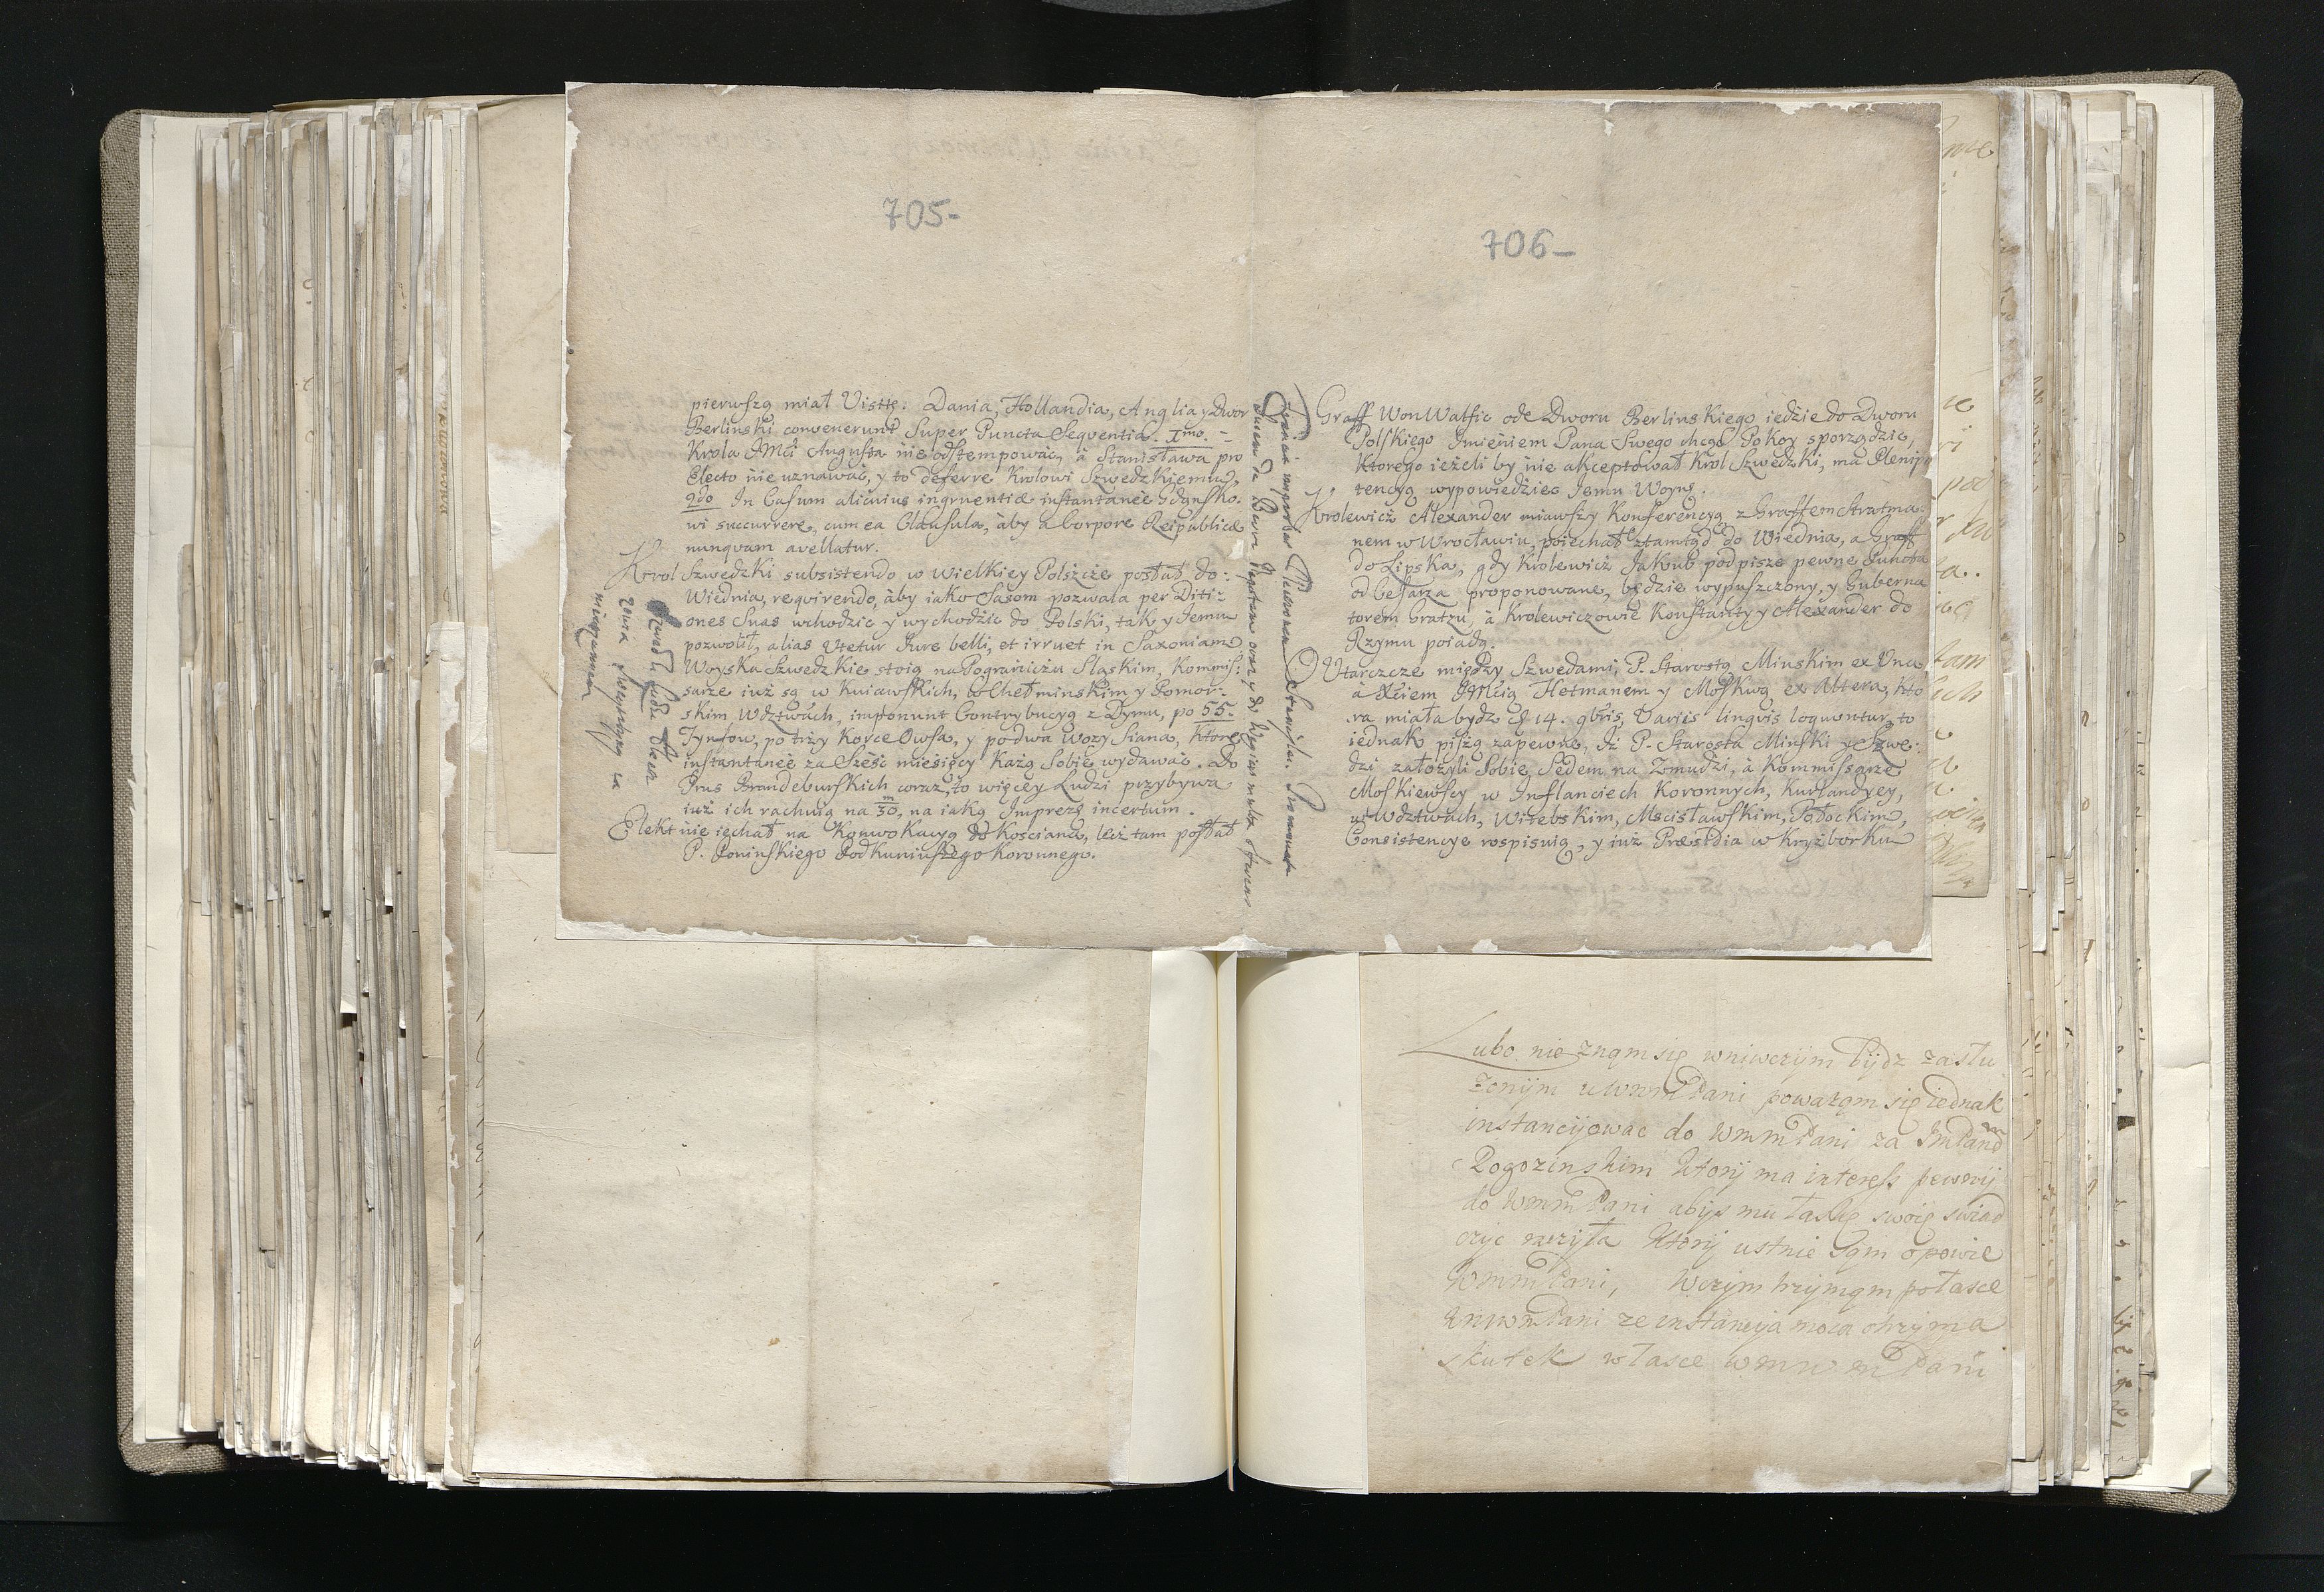 705-
pierwszą miał Vistę. Dania, Hollandia, Anglia y Dwor
Berlinski convenerunt Super Puncta Seqventia. Imo.
Krola JMći Augusta nie odstempować, à Stanisława pro
Electo nie uznawać, y to deferre Krolowi Szwedzkiemu,
2do In Casum alicuius ingruentiæ instantaneè Gdańsko-
wi succurrere, cum ea Clausula, àby a Corpore Reipublicæ
nunqvam avellatur.
Krol Szwedzki subsistendo w Wielkiey Polszcze posłał do:
Wiednia, reqvirendo, àby iako Sasom pozwala per Diti-
ones Suas wchodzić y wychodzić do Polski, tak y Jemu
pozwolił, alias Utetur Jure belli, et irruet in Saxoniam
Woyska Szwedzkie stoią na Pograniczu Sląskim, Kommis:
sarze iuż są w Kuiawskich, w Chełminskim y Pomor-
skim Wdztwach, imponunt Contrybucyą z Dymu, po 55.
Tynfow, po trzy Korce Owsa, y po dwa wozy Siana, ktore
instantaneè za Sześć miesięcy każą Sobie wydawać. Do
Prus Brandeburskich coraz, to więcey Ludzi przybywa
iuż ich rachuią na 30 m, na iaką Imprezę incertum.
Elekt nie iechał na Konwokacyą do Kosciana, lecz tam posłał
P. Poninskiego Podkuniuszego Koronnego.
706-
Graff Won Watfic ode Dworu Berlinskiego iedzie do Dworu
Polskiego Imieniem Pana Swego chcąc Pokoy sporządzić,
ktorego ieżeli by nie akceptował Krol Szwedzki, ma Plenipo
tencyą wypowiedziec Jemu Woynę.
Krolewicz Alexander miawszy Konferencyą z Graffem Stratma-
nem w Wrocławiu, poiechał ztamtąd do Wiednia, a Graff
do Lipska, gdy Krolewicz Jakub podpisze pewne Puncta
od Cesarza proponowane, będzie wypuszczony, y Guberna
torem Gratzu, à Krolewiczowie Konstanty y Alexander do
Rzymu poiadą.
O Utarczce między Szwedami, P. Starostą Minskim ex Una
à Xciem JMcią Hetmanem y Moskwą ex Altera, kto
ra miała bydz 14. 9bris, Variis lingvis loquuntur, to
iednak piszą zapewne, Iż P. Starosta Minski y Szwe-
dzi założyli Sobie Sedem na Zmudzi, à Kommissarze
Moskiewscy w Inflanciech Koronnych, Kurlandyey,
w Wdztwach, Witebskim, Mscisławskim, Połockim,
Consistencye rospisuią, y iuż Præsidia w Kryżborku
Lubo nie znąm się wniwczym bydz zasłu
zonym u WMMPani powaząm się iednak
instancyowac do WMMPani za ImPanem
Rogozinskim ktory ma interess pewny
do WMMPani abys mu łaskę swoię swiad
czyc raczyła ktory ustnie sąm opowie
WMMPani, Wczym trzymąm po łasce
WMMPani ze instancyja moia otrzyma
skutek w łasce WMMPani